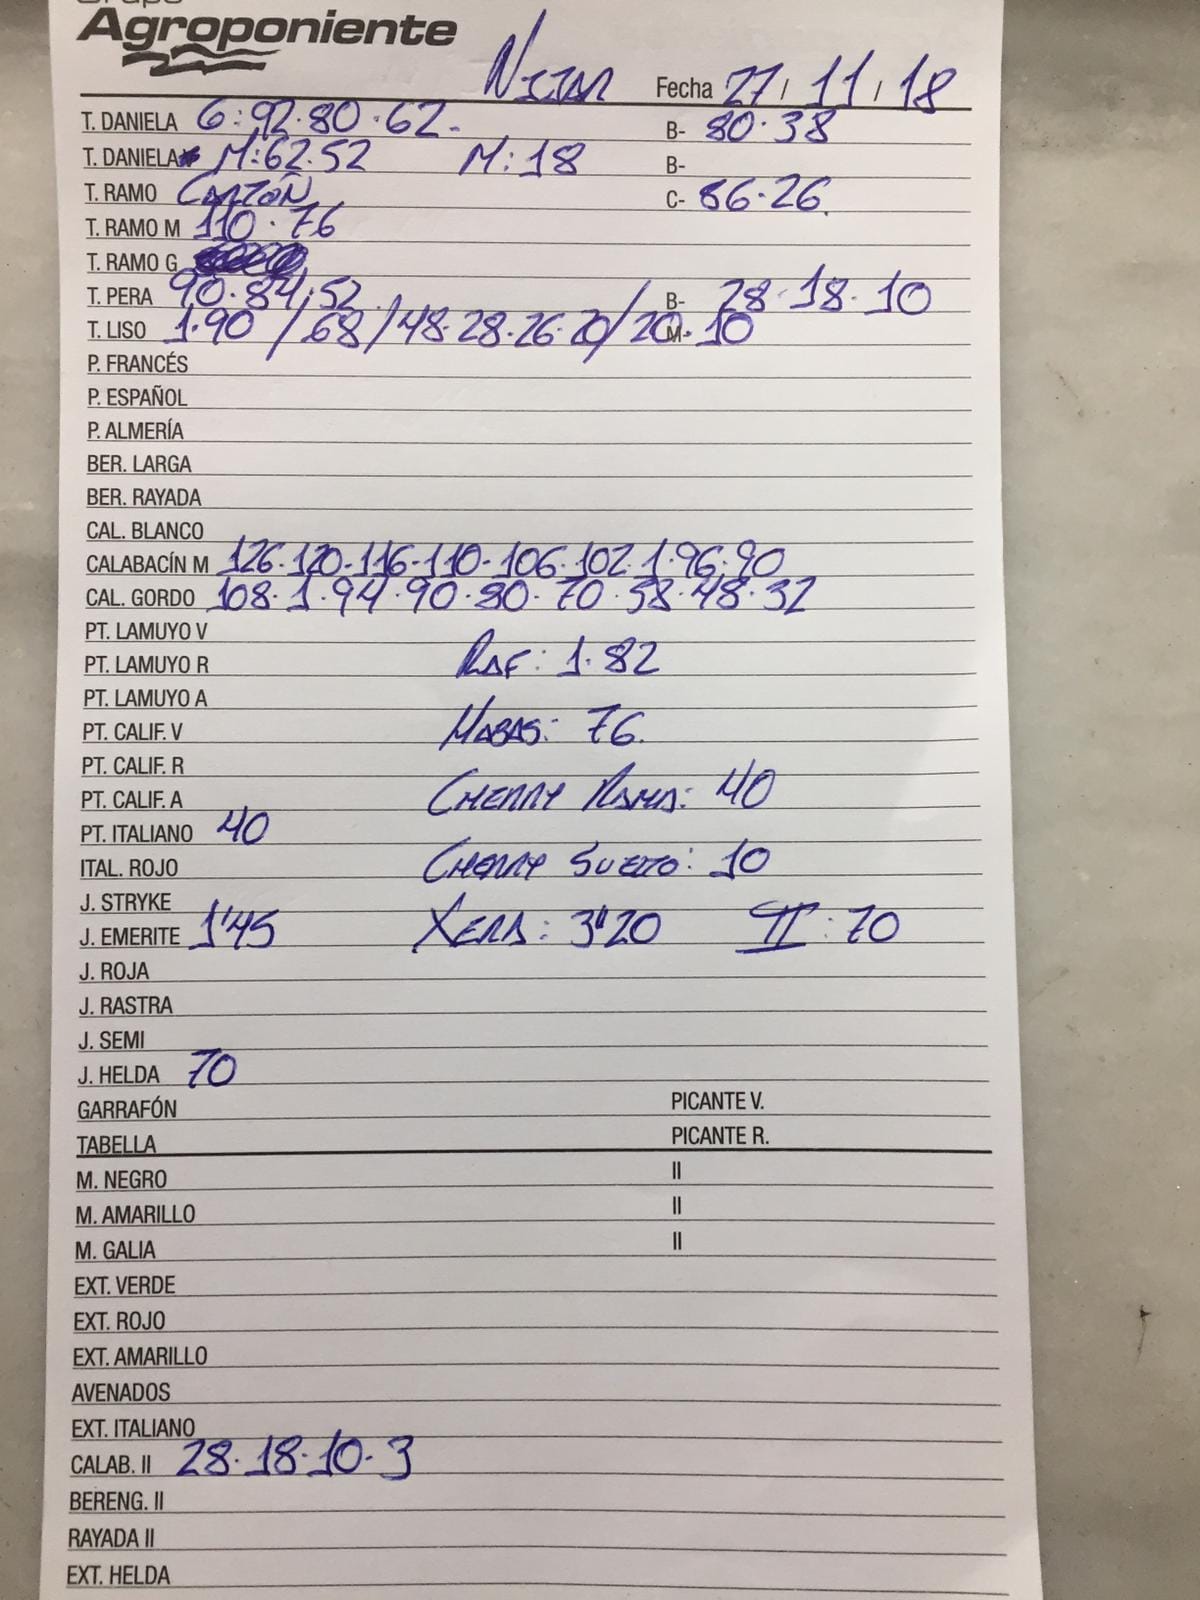 Grupo
Agroponiente
NIJAR Fecha 27/11/18
T. DANIELA G: 92.80.62. B- 80.38
T. DANIELA M: 62.52 M: 18 B-
T. RAMO CANZÓN C- 86.26.
T. RAMO M 110.76
T. RAMO G
T. PERA 90.84.52 B- 28.18.10
T. LISO 1.90/68/48.28.26.20/20.10 M-
P. FRANCÉS
P. ESPAÑOL
P. ALMERÍA
BER. LARGA
BER. RAYADA
CAL. BLANCO
CALABACÍN M 126.120.116.110.106.102.1.96.90
CAL. GORDO 108.1.94.90.80.70.58.48.32
PT. LAMUYO V
PT. LAMUYO R RAF: 1.82
PT. LAMUYO A
PT. CALIF. V HABAS: 76.
PT. CALIF. R
PT. CALIF. A CHERRY RAMA: 40
PT. ITALIANO 40
ITAL. ROJO CHERRY SUELTO: 10
J. STRYKE
J. EMERITE 1'45 XERA: 3'20 II: 70
J. ROJA
J. RASTRA
J. SEMI
J. HELDA 70
GARRAFÓN PICANTE V.
TABELLA PICANTE R.
M. NEGRO II
M. AMARILLO II
M. GALIA II
EXT. VERDE
EXT. ROJO
EXT. AMARILLO
AVENADOS
EXT. ITALIANO
CALAB. II 28.18.10.3
BERENG. II
RAYADA II
EXT. HELDA